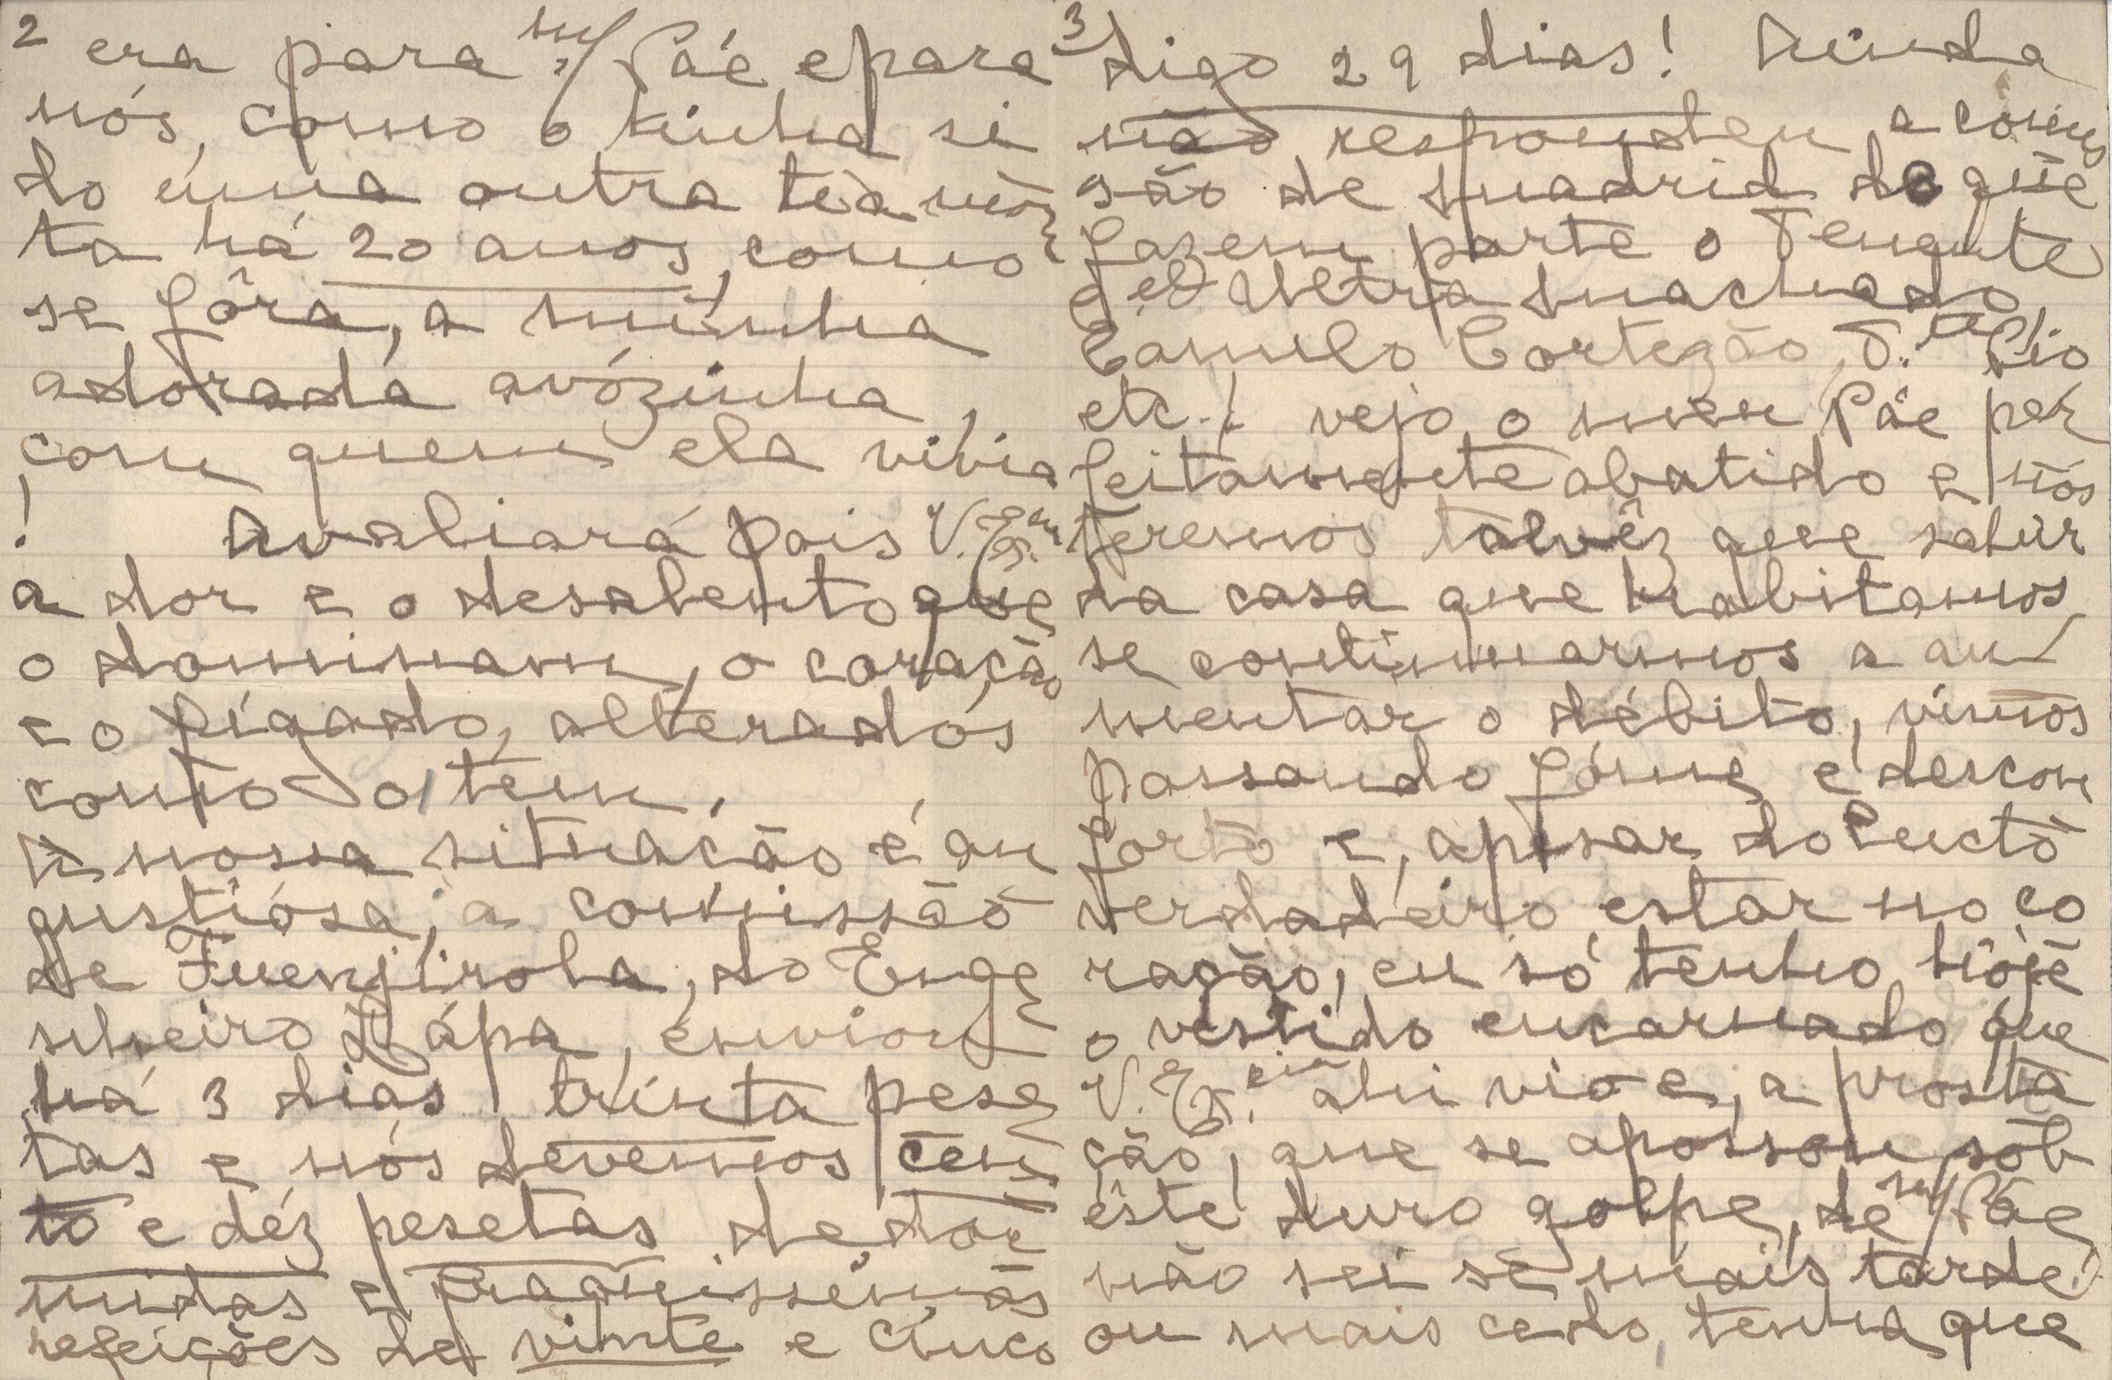 2
era para m/ Páe e para
nós, como o tinha si
do uma outra tia mor
ta há 20 anos, como
se fôra, a minha
adorada avózinha,
com quem ela vivia
! Avaliará pois V. Ex.cia
a dor e o desalento que
o dominam, o coração
e o fígado, alterados
como o/ tem.
A nossa situação é an
gustiósa; a comissão
de Fuenjirola, do Enge
nheiro Lápa, enviou
há 3 dias trinta pese
tas e nós devemos cen
to e déz pesetas de dor
midas e fraquissimas
refeições de vinte e cinco
3
digo 29 dias! Ainda
não respondeu a comis
são de Madrid de que
fazem parte o Tenente
d'Ultra Machado,
Camilo Cortezão, T.te Pio
etc.! vejo o meu Páe per
feitamente abatido e nós
teremos talvêz que sahir
da casa que habitamos
se continuarmos a au
mentar o débito, vimos
passando fóme e descon
forto e, apesar do lucto
verdadeiro estar no co
ração, eu só tenho hôje
o vestido encarnado que
V. Ex.cia ahi vio e, a prosta
ção, que se apossou sôb
êste duro golpe, de m/ Páe
não sei se mais tarde
ou mais cedo, tenha que